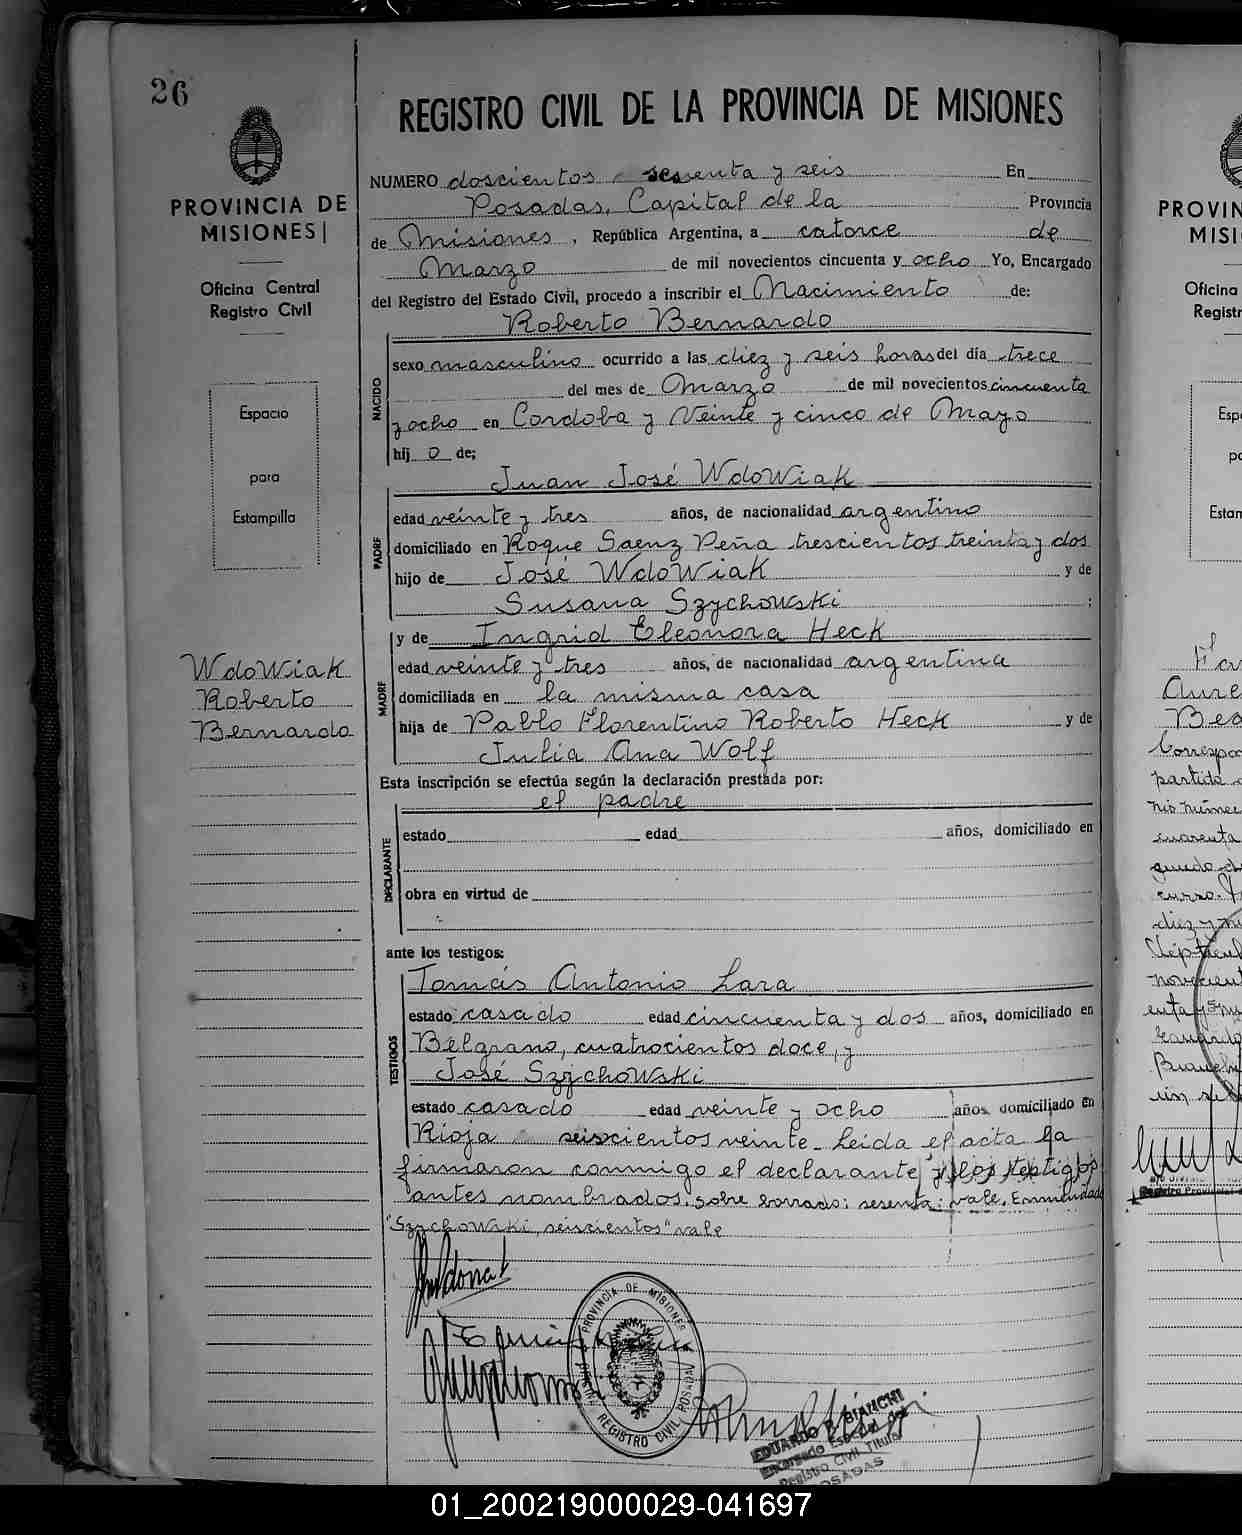 26
PROVINCIA DE
MISIONES
Oficina Central
Registro Civil
Espacio
para
Estampilla
WdoWiak
Roberto
Bernardo
REGISTRO CIVIL DE LA PROVINCIA DE MISIONES
NUMERO doscientos sesenta y seis En
Posadas, Capital de la Provincia
de Misiones, República Argentina, a catorce de
Marzo de mil novecientos cincuenta y ocho Yo, Encargado
del Registro del Estado Civil, procedo a inscribir el Nacimiento de:
Roberto Bernardo
NACIDO
sexo masculino ocurrido a las diez y seis horas del día trece
del mes de Marzo de mil novecientos cincuenta
y ocho en Cordoba y Veinte y cinco de Mayo
hij o de;
Juan José WdoWiak
PADRE
edad veinte y tres años, de nacionalidad argentino
domiciliado en Roque Saenz Peña trescientos treinta y dos
hijo de José WdoWiak y de
Susana Szychowski ;
y de Ingrid Eleonora Heck
MADRE
edad veinte y tres años, de nacionalidad argentina
domiciliada en la misma casa
hija de Pablo Florentino Roberto Heck y de
Julia Ana Wolf
Esta inscripción se efectúa según la declaración prestada por:
el padre
DECLARANTE
estado edad años, domiciliado en
obra en virtud de
ante los testigos:
Tomás Antonio Lara
TESTIGOS
estado casado edad cincuenta y dos años, domiciliado en
Belgrano, cuatrocientos doce, y
José SzychoWski
estado casado edad veinte y ocho años, domiciliado en
Rioja seiscientos veinte - Leida el acta la
firmaron conmigo el declarante y los testigos
antes nombrados. Sobre borrado: sesenta: vale. Enmendado
"SzychoWski, seiscientos" vale
PROVINCIA DE MISIONES
REGISTRO CIVIL POSADAS
EDUARDO R. BIANCHI
Encargado Especial del
Registro Civil Titular
POSADAS
PROVIN
MISI
Oficina
Registr
Espa
pa
Estam
Aure
partida
cuarenta
01_200219000029-041697